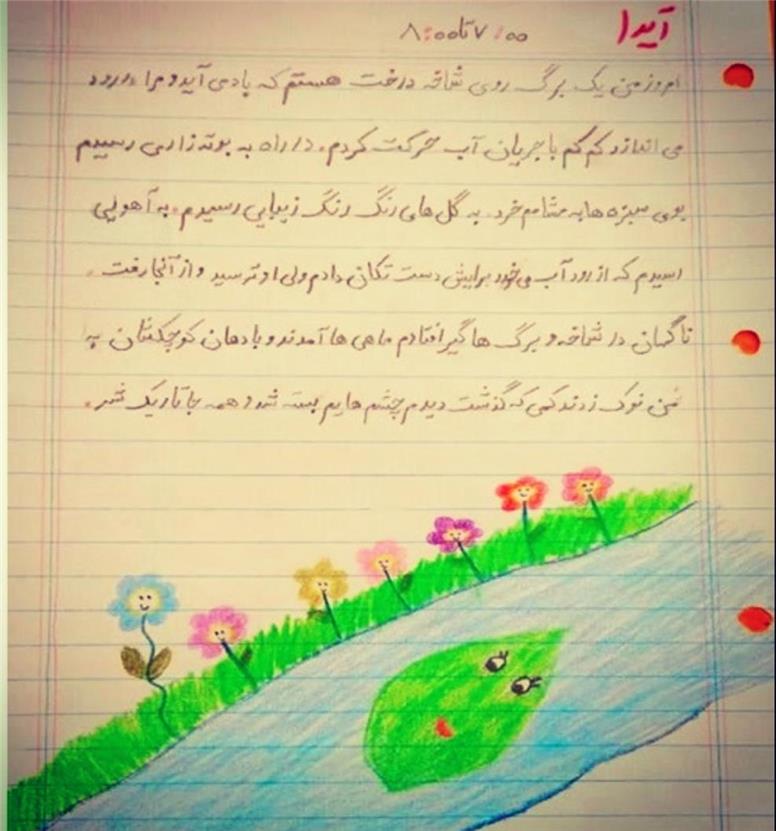 آیدا ۷:۰۰ تا ۸:۰۰
امروز من یک برگ روی شاخه درخت هستم که باد می آید و مرا در رود
می اندازد کم کم با جریان آب حرکت کردم. در راه به بوته زاری رسیدم
بوی سبزه ها به مشامم خرد. به گل های رنگ رنگ زیبایی رسیدم. به آهویی
رسیدم که از رود آب می خورد برایش دست تکان دادم ولی او ترسید و از آنجا رفت.
ناگهان در شاخه و برگ ها گیر افتادم ماهی ها آمدند و با دهان کوچکشان به
من نوک زدند کمی که گذشت دیدم چشم هایم بسته شد و همه جا تاریک شد.